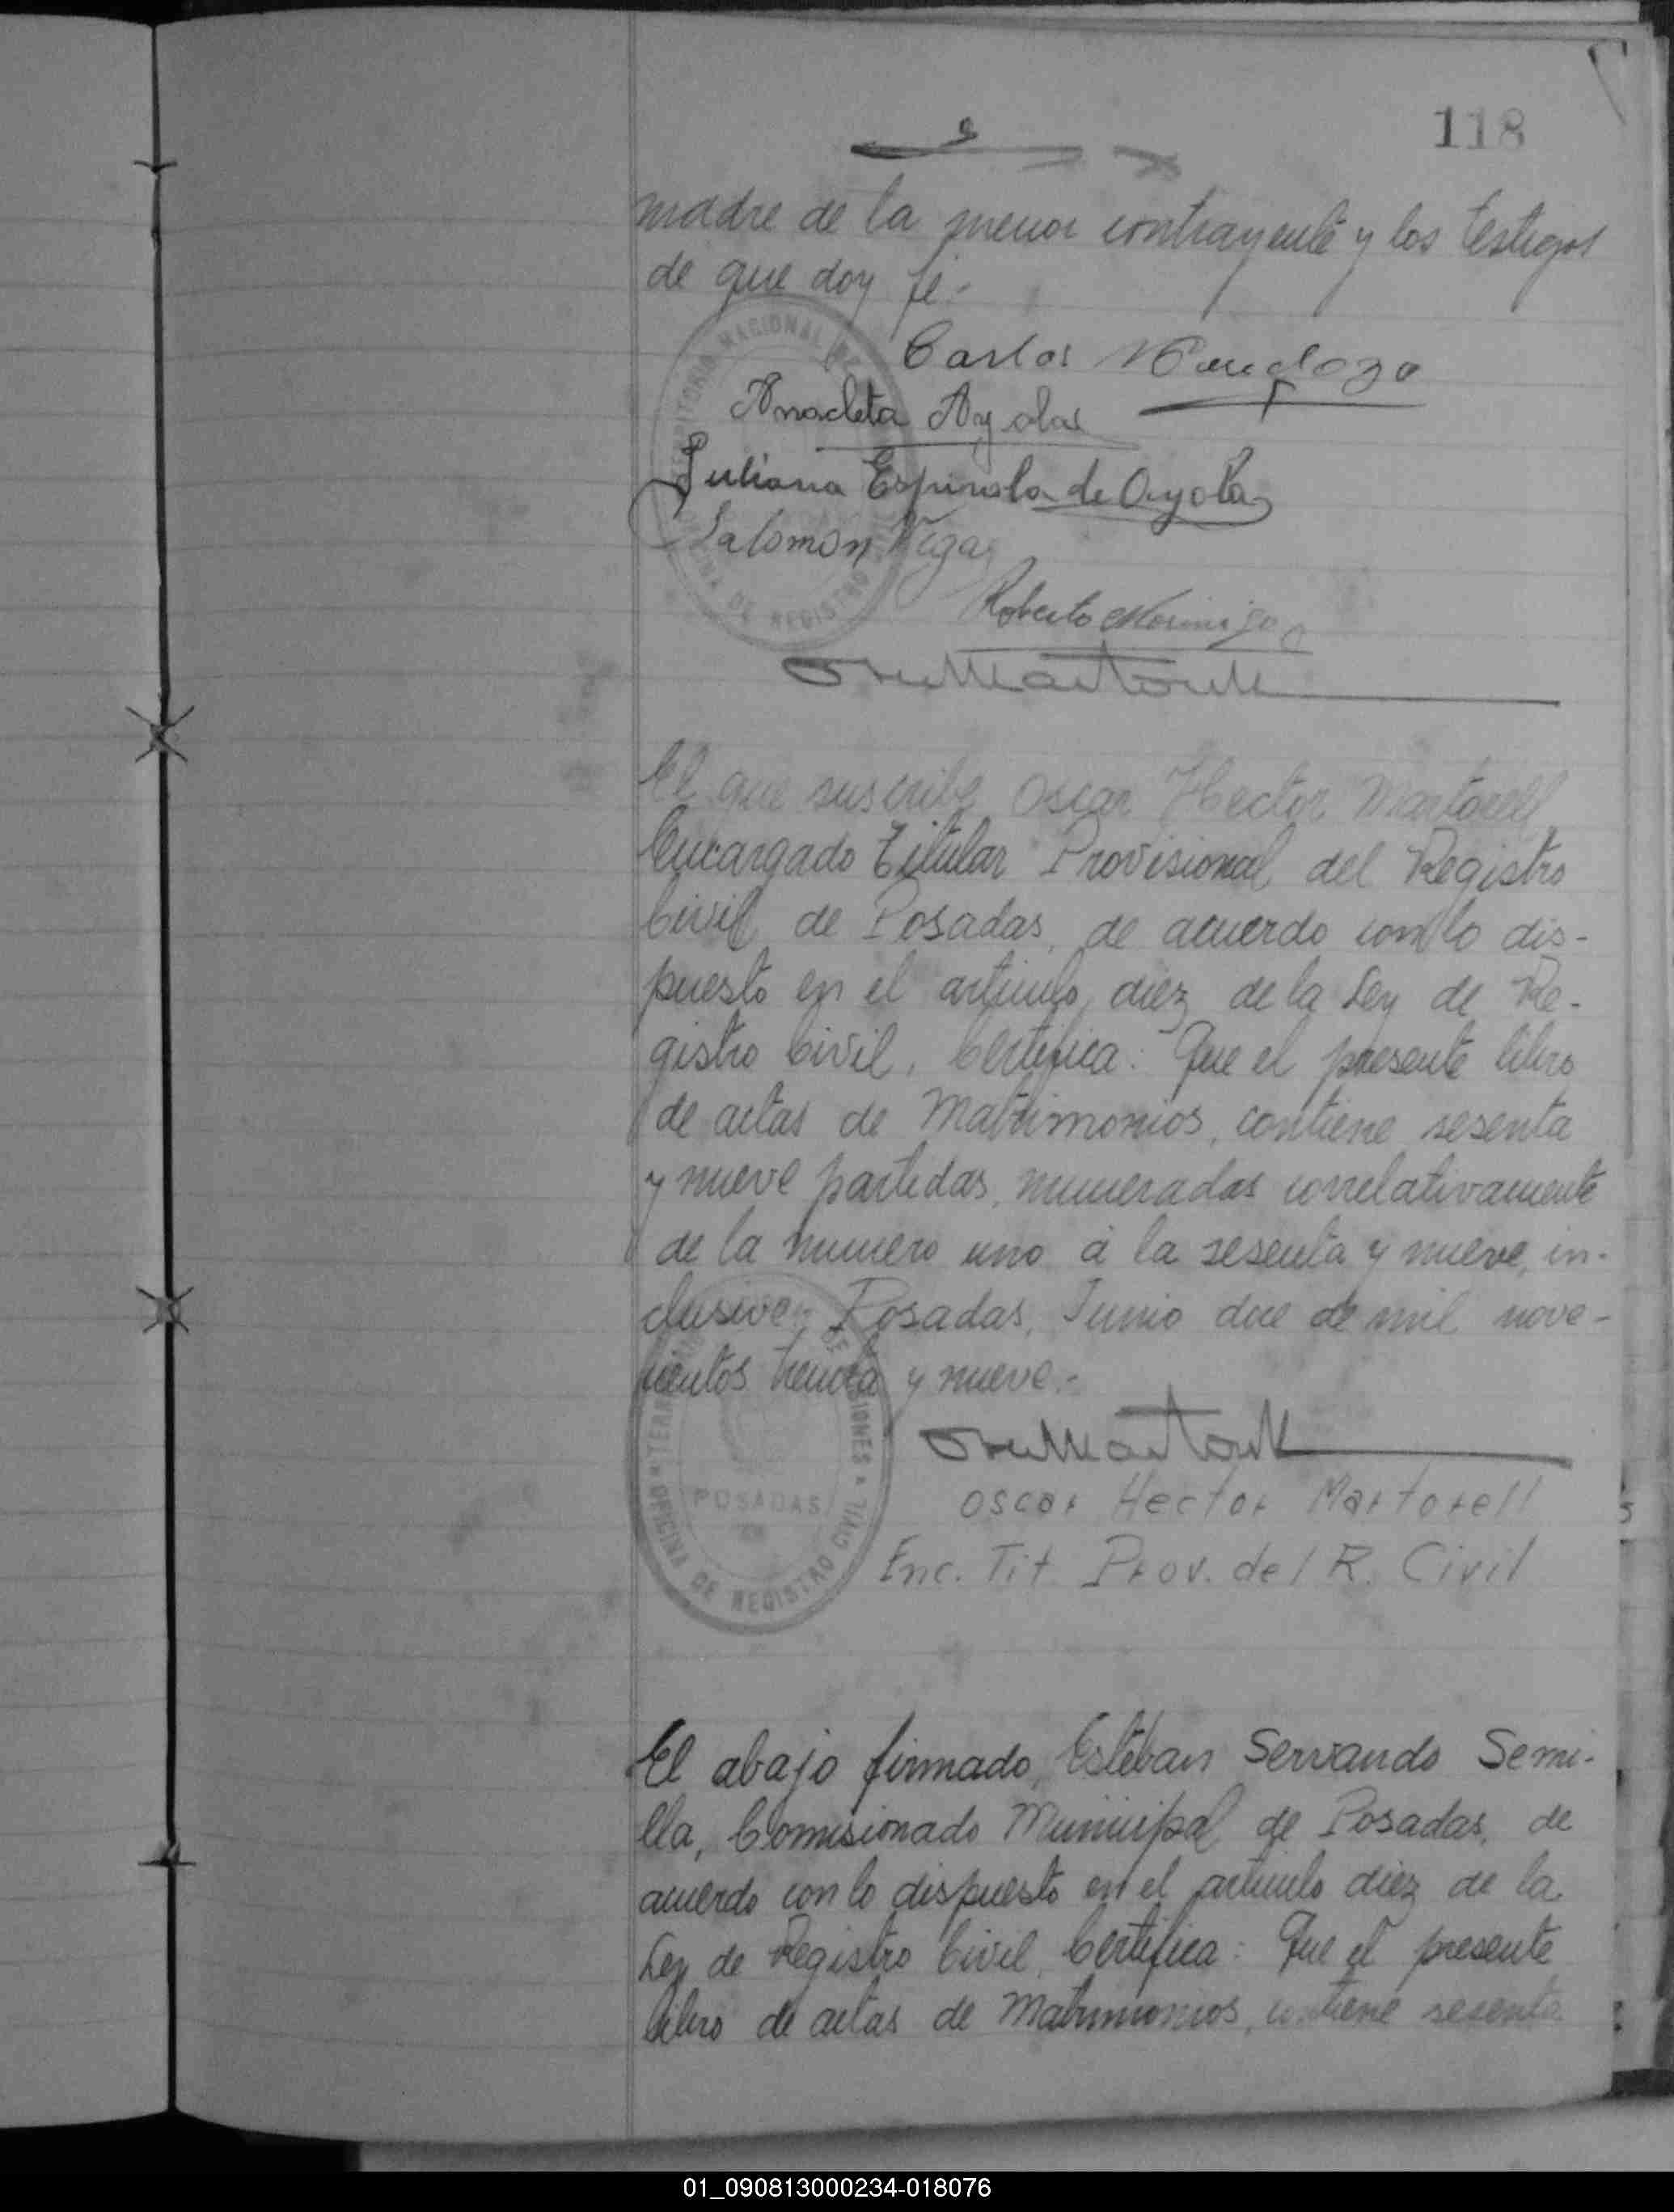 118
madre de la menor contrayente y los testigos
de que doy fé.-
Carlos Mendoza
Anacleta Ayolas
Juliana Espinola de Ayola
Salomón Vega
Roberto
El que suscribe, Oscar Hector Martorell
Encargado Titular Provisional del Registro
Civil de Posadas, de acuerdo con lo dis-
puesto en el articulo diez de la Ley de Re-
gistro Civil, Certifica: Que el presente libro
de actas de Matrimonios, contiene sesenta
y nueve partidas, numeradas correlativamente
de la numero uno á la sesenta y nueve, in-
clusive.- Posadas, Junio de mil nove-
cientos treinta y nueve.-
TERRITORIO NACIONAL DE MISIONES
POSADAS
OFICINA DE REGISTRO CIVIL
Oscar Hector Martorell
Enc. Tit. Prov. del R. Civil
El abajo firmado, Esteban Servando Semi-
lla, Comisionado Municipal de Posadas, de
acuerdo con lo dispuesto en el articulo diez de la
Ley de Registro Civil, Certifica: Que el presente
libro de actas de Matrimonios, contiene sesenta
01_090813000234-018076